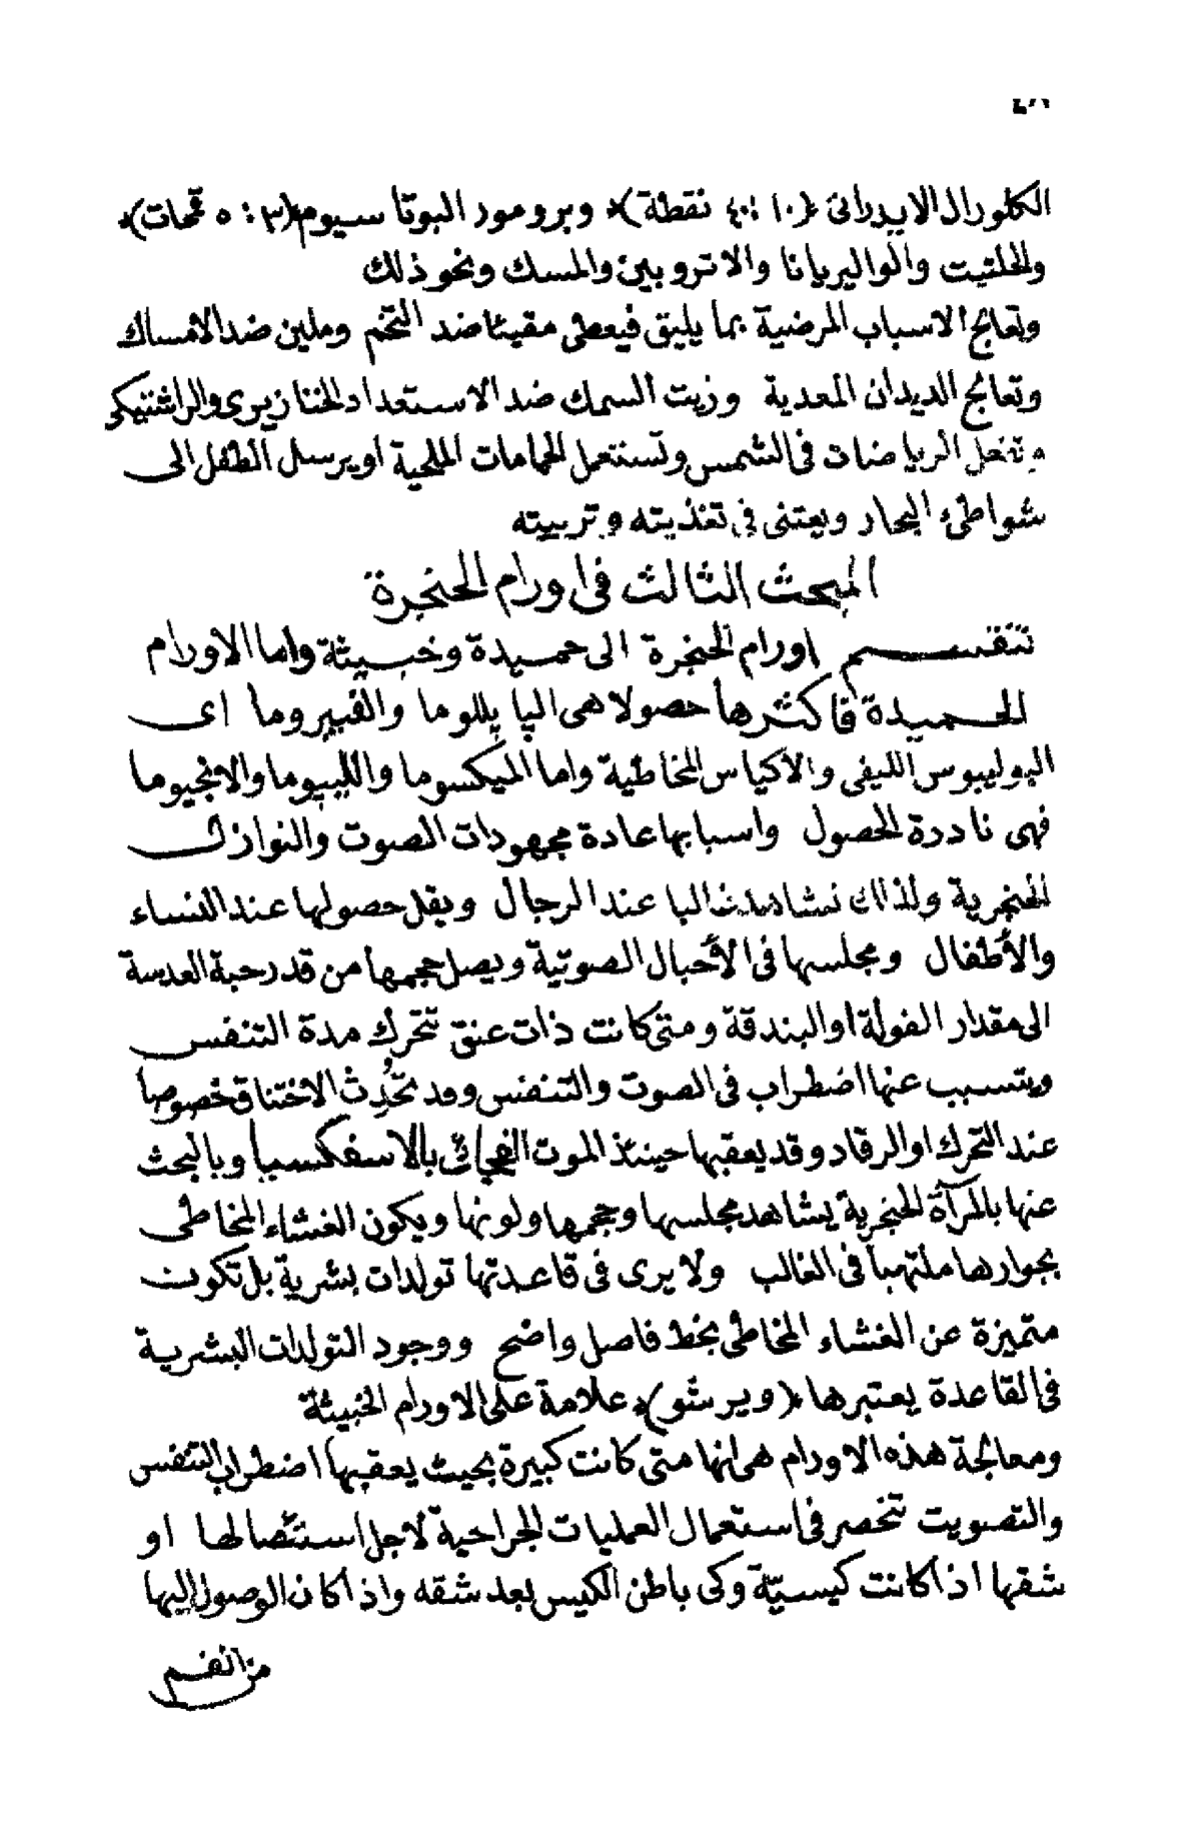 الكلورال الايدراتى (١٠ : ٤٠ نقطة) وبرومور البوتاسيوم (٣ : ٥ قمحات)
والحلتيت والواليريانا والاتروبين والمسك ونحو ذلك
وتعالج الاسباب المرضية بما يليق فيعطى مقيئا ضد التخم وملين ضد الامساك
وتعالج الديدان المعدية وزيت السمك ضد الاستعداد الخنازيرى والراشتيكى
وتفعل الرياضات فى الشمس وتستعمل الحمامات الملحية او يرسل الطفل الى
شواطئ البحار ويعتنى فى تغذيته وتربيته
المبحث الثالث فى اورام الحنجرة
تنقسم اورام الحنجرة الى حميدة وخبيثة واما الاورام
الحميدة فاكثرها حصولا هى الپاپيللوما والفيبروما اى
البوليبوس الليفى والاكياس المخاطية واما الميكسوما والليپوما والانجيوما
فهى نادرة الحصول واسبابها عادة مجهودات الصوت والنوازل
الحنجرية ولذلك نشاهد غالبا عند الرجال ويقل حصولها عند النساء
والأطفال ومجلسها فى الأحبال الصوتية ويصل حجمها من قدر حبة العدسة
الى مقدار الفولة او البندقة ومتى كانت ذات عنق تتحرك مدة التنفس
ويتسبب عنها اضطراب فى الصوت والتنفس وقد تحُدِث الاختناق خصوصا
عند التحرك او الرقاد وقد يعقبها حينئذ الموت الفجائى بالاسفكسيا وبالبحث
عنها بالمرآة الحنجرية يشاهد مجلسها وحجمها ولونها ويكون الغشاء المخاطى
بجوارها ملتهبا فى الغالب ولا يرى فى قاعدتها تولدات بشرية بل تكون
متميزة عن الغشاء المخاطى بخط فاصل واضح ووجود التولدات البشرية
فى القاعدة يعتبرها (ويرشو) علامة على الاورام الخبيثة
ومعالجة هذه الاورام هى انها متى كانت كبيرة بحيث يعقبها اضطراب التنفس
والتصويت تنحصر فى استعمال العمليات الجراحية لاجل استئصالها او
شقها اذا كانت كيسيّة وكى باطن الكيس بعد شقه واذا كان الوصول اليها
من الفم